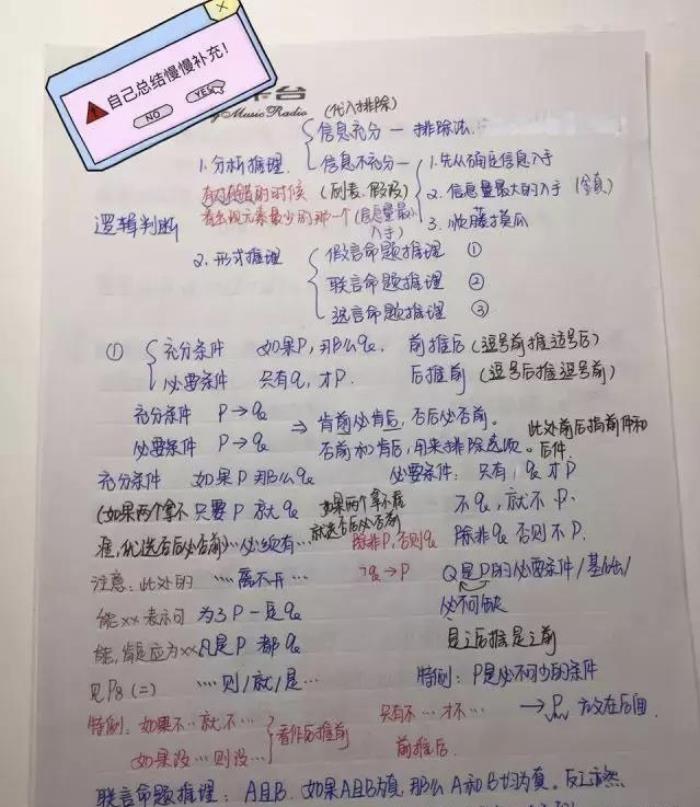 自己总结慢慢补充！
NO YES
台
Music Radio
(代入排除)
信息充分一 排除法.
1.分析推理. 信息不充分一 1.先从确定信息入手
有对有错的时候 (列表、假设) 2. 信息量最大的入手
看出现元素最少的那一个(信息量最 3. 顺藤摸瓜
入手)
逻辑判断
2. 形式推理 假言命题推理 ①
联言命题推理 ②
选言命题推理 ③
① 充分条件 如果P, 那么q. 前推后 (逗号前推逗号后)
必要条件 只有q, 才P. 后推前 (逗号后推逗号前)
充分条件 P→q
必要条件 P→q ⇒ 肯前必肯后, 否后必否前.
否前和肯后, 用来排除选项。
此处前后指前件和
后件.
充分条件 如果P那么q 必要条件: 只有, q才P
(如果两个拿不 只要P就q 如果两个拿不准 不q, 就不P.
准, 优选否后必否前) …必须有… 就选否后必否前 除非P, 否则q 除非q 否则不P.
注意: 此处的 …离不开… ¬q→P Q是P的必要条件/基础/
能xx表示可 为了P一定q 必不可缺
能, 肯定应为xx 凡是P 都q 是之后推是之前
见P8 (二) …则/就/是… 特例: P是必不可少的条件
特例: 如果不…就不… 看作后推前 只有不…才不… →P 放在后面
如果没…则没… 前推后.
联言命题推理: A且B. 如果A且B为真, 那么A和B均为真。反之亦然